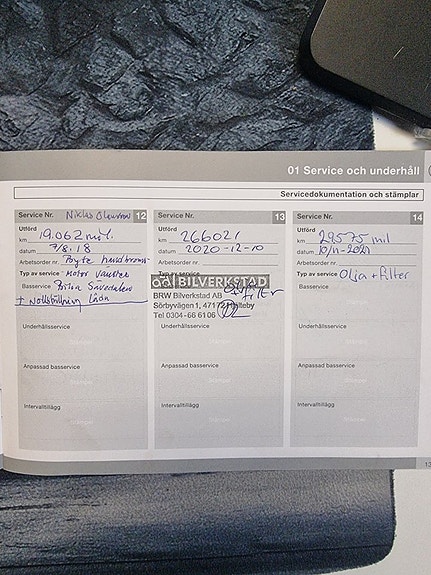 01 Service och underhåll
Servicedokumentation och stämplar
Service Nr. Niklas 12
Utförd
km 19.062 mil.
datum 7/8.18
Arbetsorder nr. Bytt
Typ av service Motor
Basservice
+ Nollställning
Underhållsservice
Stämpel
Anpassad basservice
Stämpel
Intervalltillägg
Stämpel
Service Nr. 13
Utförd
km 266021
datum 2020-12-10
Arbetsorder nr.
Typ av service
BILVERKSTAD
BRW Bilverkstad AB
Sörbyvägen 1, 47172 Hjälteby
Tel 0304-66 61 06
Filter
Underhållsservice
Stämpel
Anpassad basservice
Stämpel
Intervalltillägg
Stämpel
Service Nr. 14
Utförd
km 29575 mil
datum 10/11-2021
Arbetsorder nr.
Typ av service Olja + filter
Basservice
Underhållsservice
Stämpel
Anpassad basservice
Stämpel
Intervalltillägg
Stämpel
13